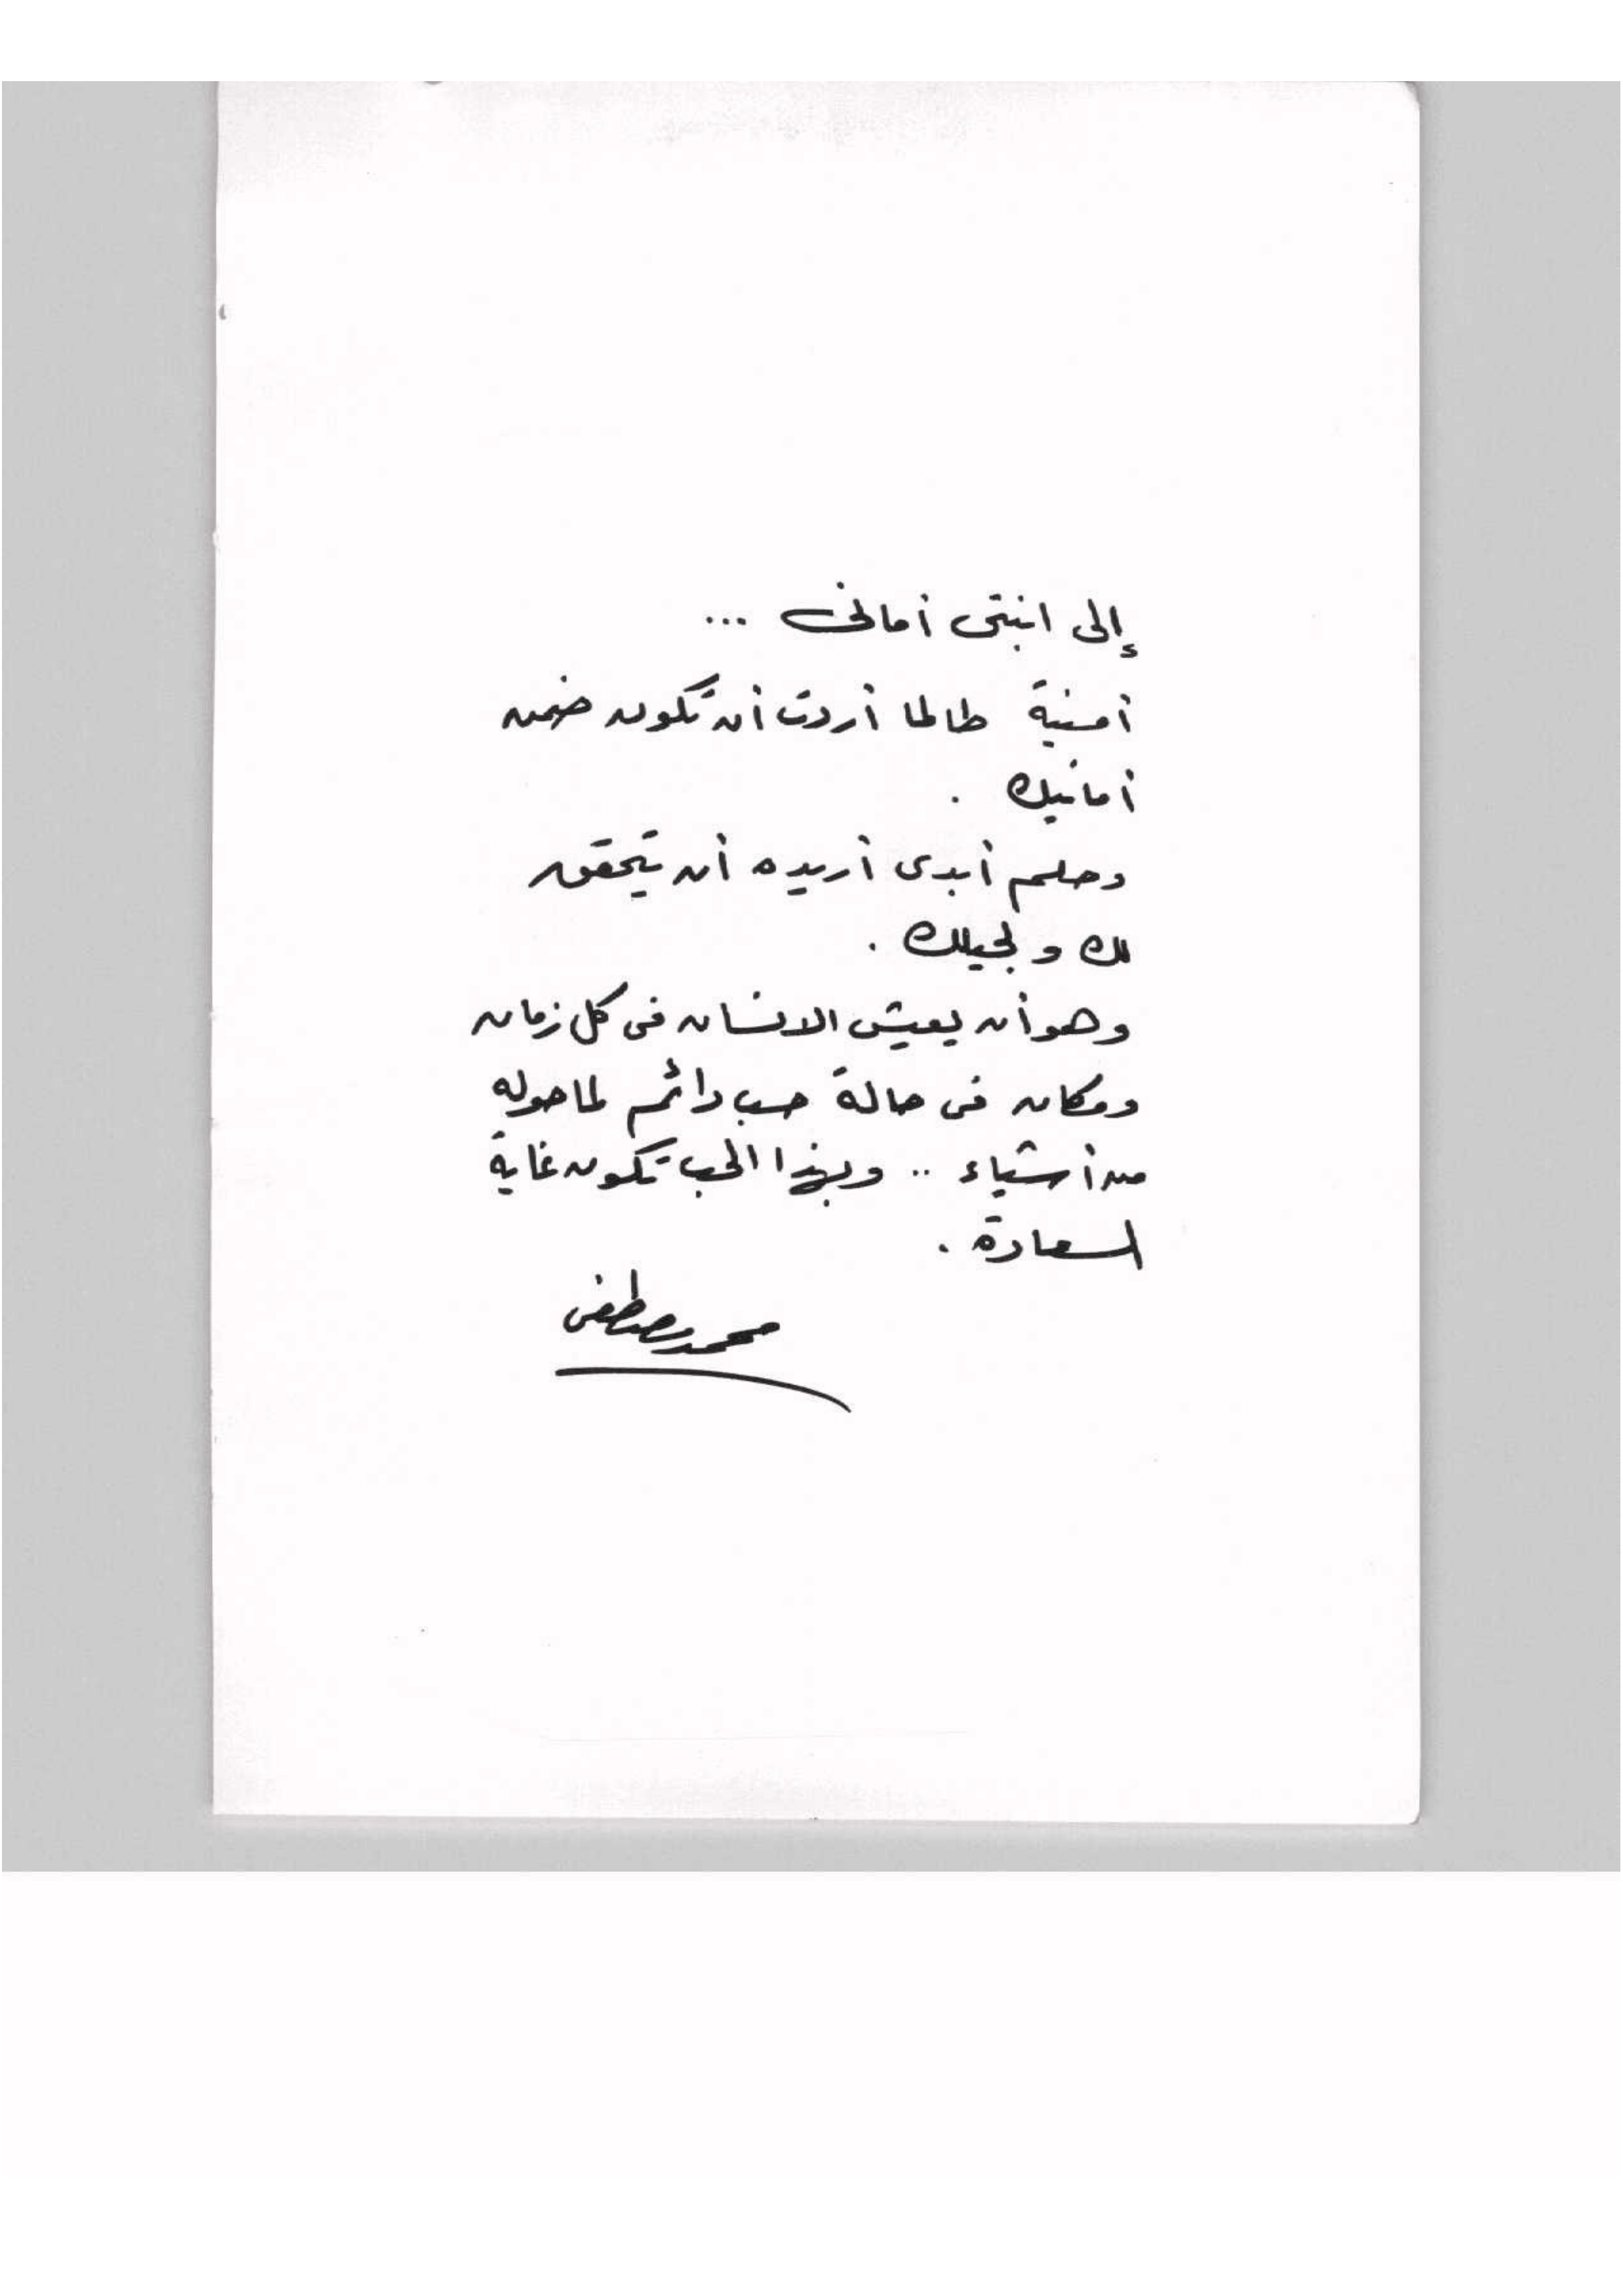 إلى ابنتى أمانى ...
أمنية طالما أردت أن تكون ضمن
أمانيك .
وحلم أبدى أريده أن يتحقق
لك ولجيلك .
وهو أن يعيش الانسان فى كل زمان
ومكان فى حالة حب دائم لما حوله
من أشياء .. وبهذا الحب تكون غاية
السعادة .
محمد مصطفى